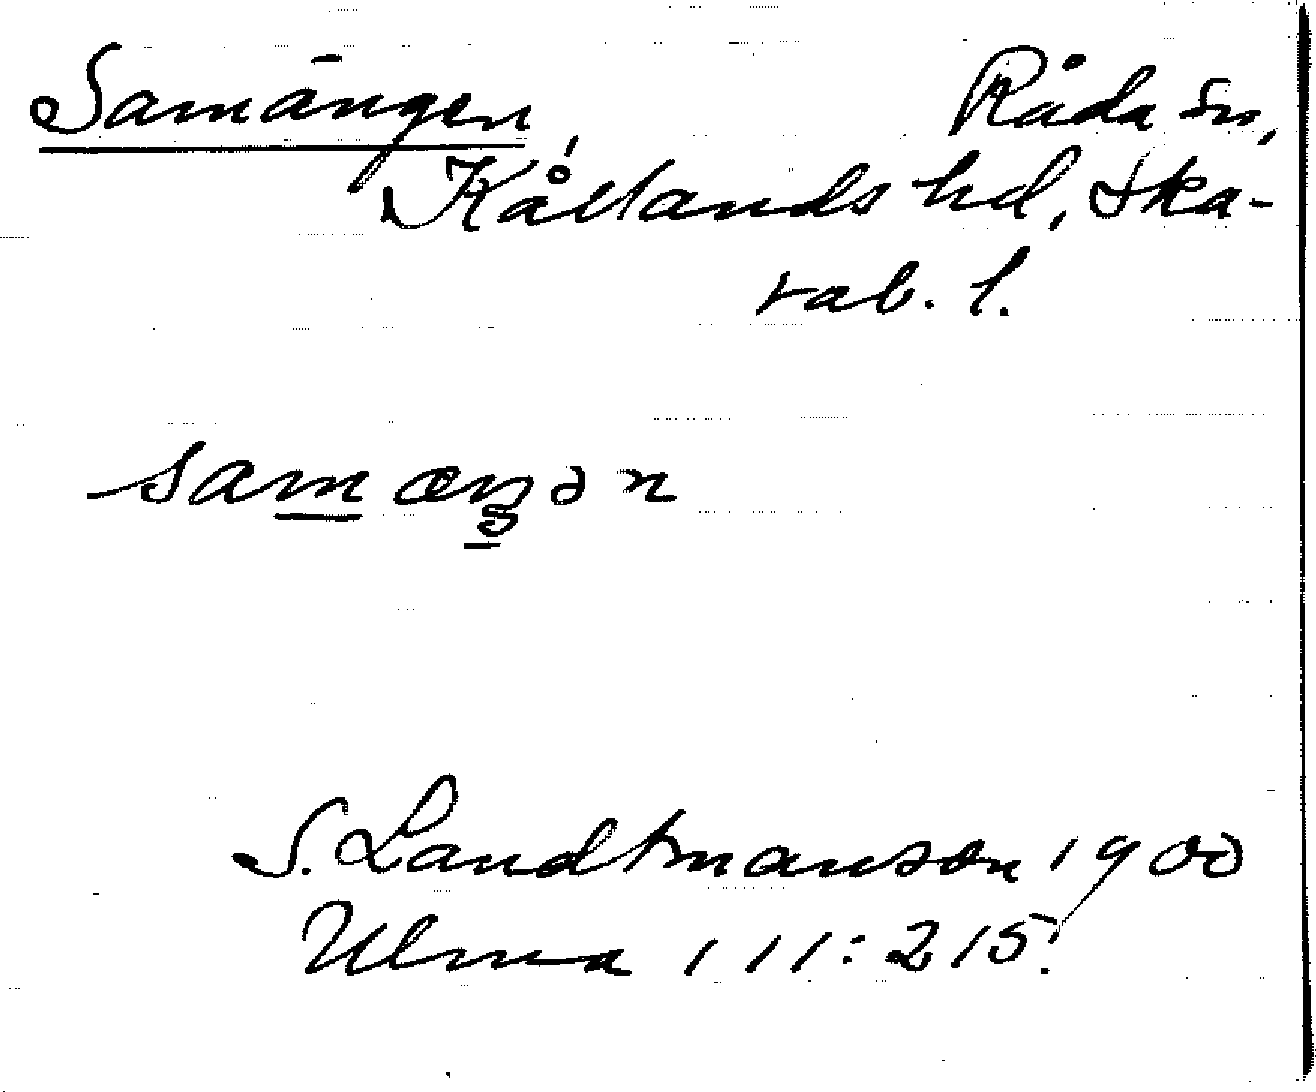 Samängen, Råda sn,
Kållands hd, Ska-
rab. l.
samæŋən
S. Landtmanson 1900
Ulma 111:215.